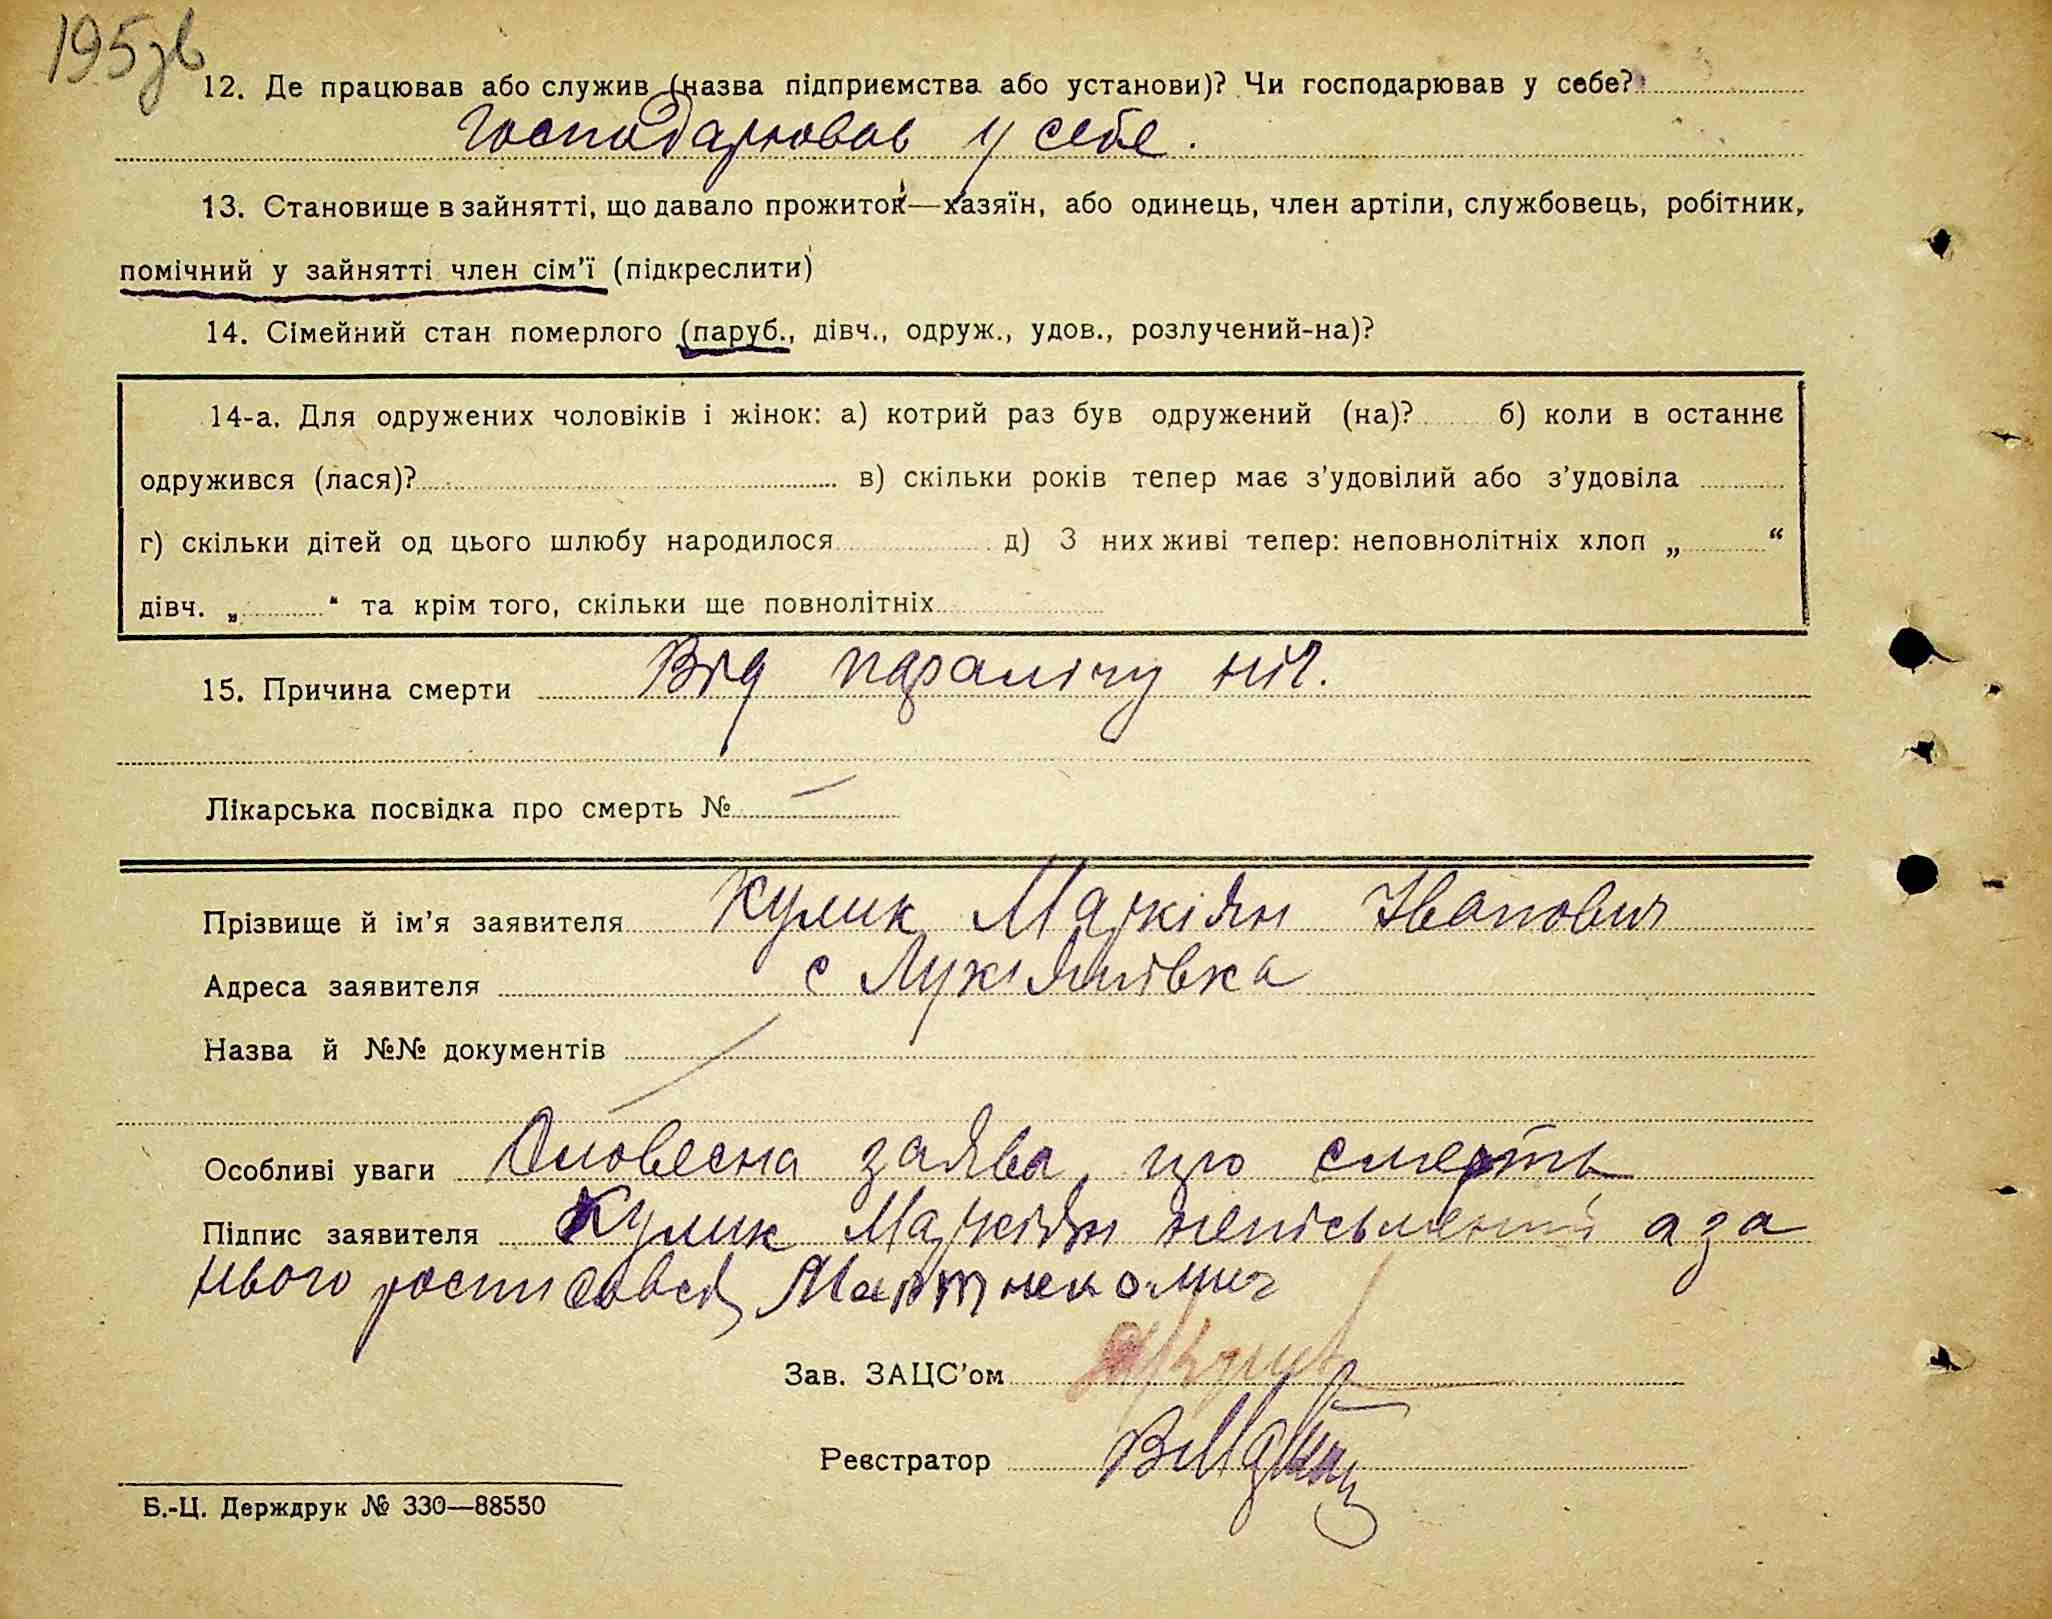 195зв
12. Де працював або служив (назва підприємства або установи)? Чи господарював у себе?
Господарював у себе.
13. Становище в зайнятті, що давало прожиток—хазяїн, або одинець, член артіли, службовець, робітник,
помічний у зайнятті член сім'ї (підкреслити)
14. Сімейний стан померлого (паруб., дівч., одруж., удов., розлучений-на)?
14-а. Для одружених чоловіків і жінок: а) котрий раз був одружений (на)? б) коли в останнє
одружився (лася)? в) скільки років тепер має з'удовілий або з'удовіла
г) скільки дітей од цього шлюбу народилося д) З них живі тепер: неповнолітніх хлоп „ “
дівч. „ “ та крім того, скільки ще повнолітніх
15. Причина смерти Від паралічу ніг.
Лікарська посвідка про смерть № —
Прізвище й ім'я заявителя Кулик Маркіян Іванович
Адреса заявителя с Лукіянівка
Назва й №№ документів
Особливі уваги Словесна заява про смерть
Підпис заявителя Кулик Маркіян неписьменний а за
нього росписався
Зав. ЗАЦС'ом
Реєстратор
Б.-Ц. Держдрук № 330—88550